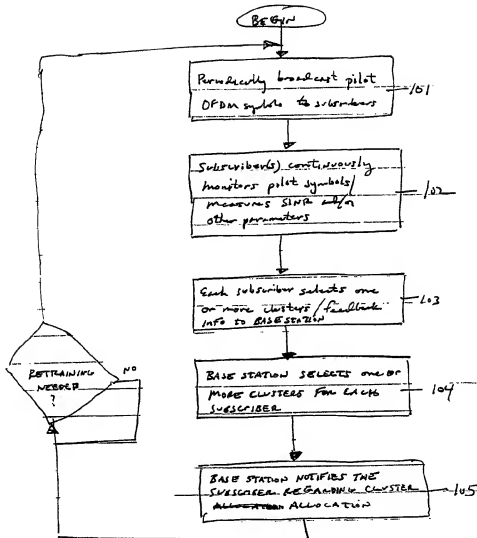 BEGIN
Periodically broadcast pilot
OFDM symbols to subscribers
101
Subscriber(s) continuously
monitors pilot symbols/
measures SINR and/or
other parameters
102
Each subscriber selects one
or more clusters/feedback
info to BASE STATION
103
BASE STATION SELECTS ONE OR
MORE CLUSTERS FOR EACH
SUBSCRIBER
104
BASE STATION NOTIFIES THE
SUBSCRIBER REGARDING CLUSTER
ALLOCATION
105
RETRAINING
NEEDED
?
NO